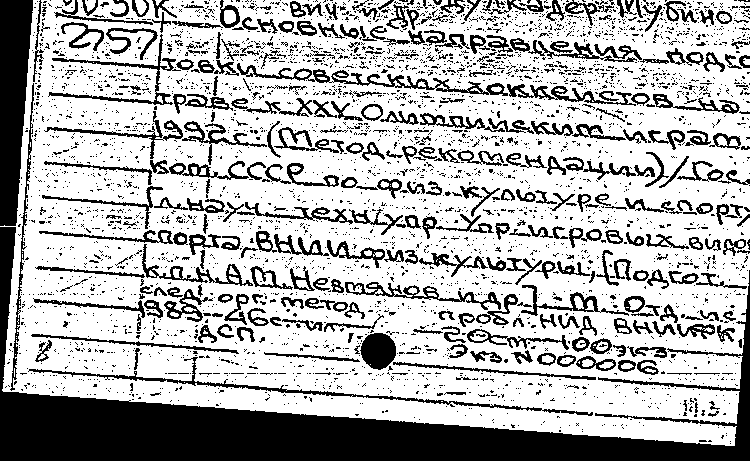 90-30К вич. и др.
2757 Основные направления подго
товки советских хоккеистов на
траве к XXV Олимпийским играм
1992г.:(Метод.рекомендации)/Гос.
ком. СССР по физ. культуре и спорту
Гл.науч.-техн.упр. Упр.игровых видов
спорта, ВНИИ физ.культуры;[Подгот.
к.п.н. А.М.Невмянов и др.]-М.:Отд. ис
след. орг.-метод. пробл. НИД ВНИИФК,
1989.-46с.:ил. 20см.-100экз.
ДСП. Экз.N000006
8